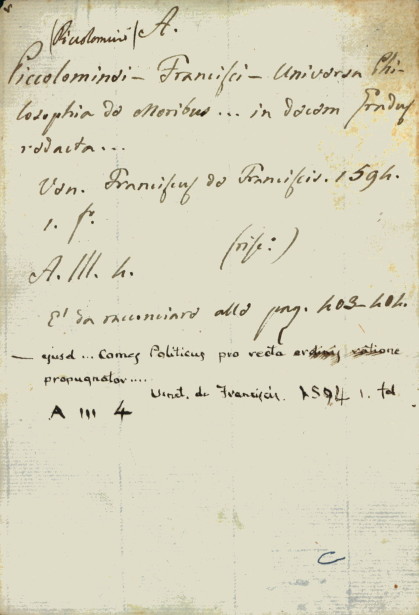 (Piccolomini) A.
Piccolominei – Francisci – Universa Phi-
losophia de Moribus ... in decem Gradus
redacta ...
Ven. Franciscus de Franciscis. 1594.
1. f.º
(rist:)
A. III. 4.
E' da racconciare alle pag. 403-404.
— ejusd ... Comes Politicus pro recta ordinis ratione
propugnator ....
Venet. de Franciscis. 1594 1. fol
A III 4
C